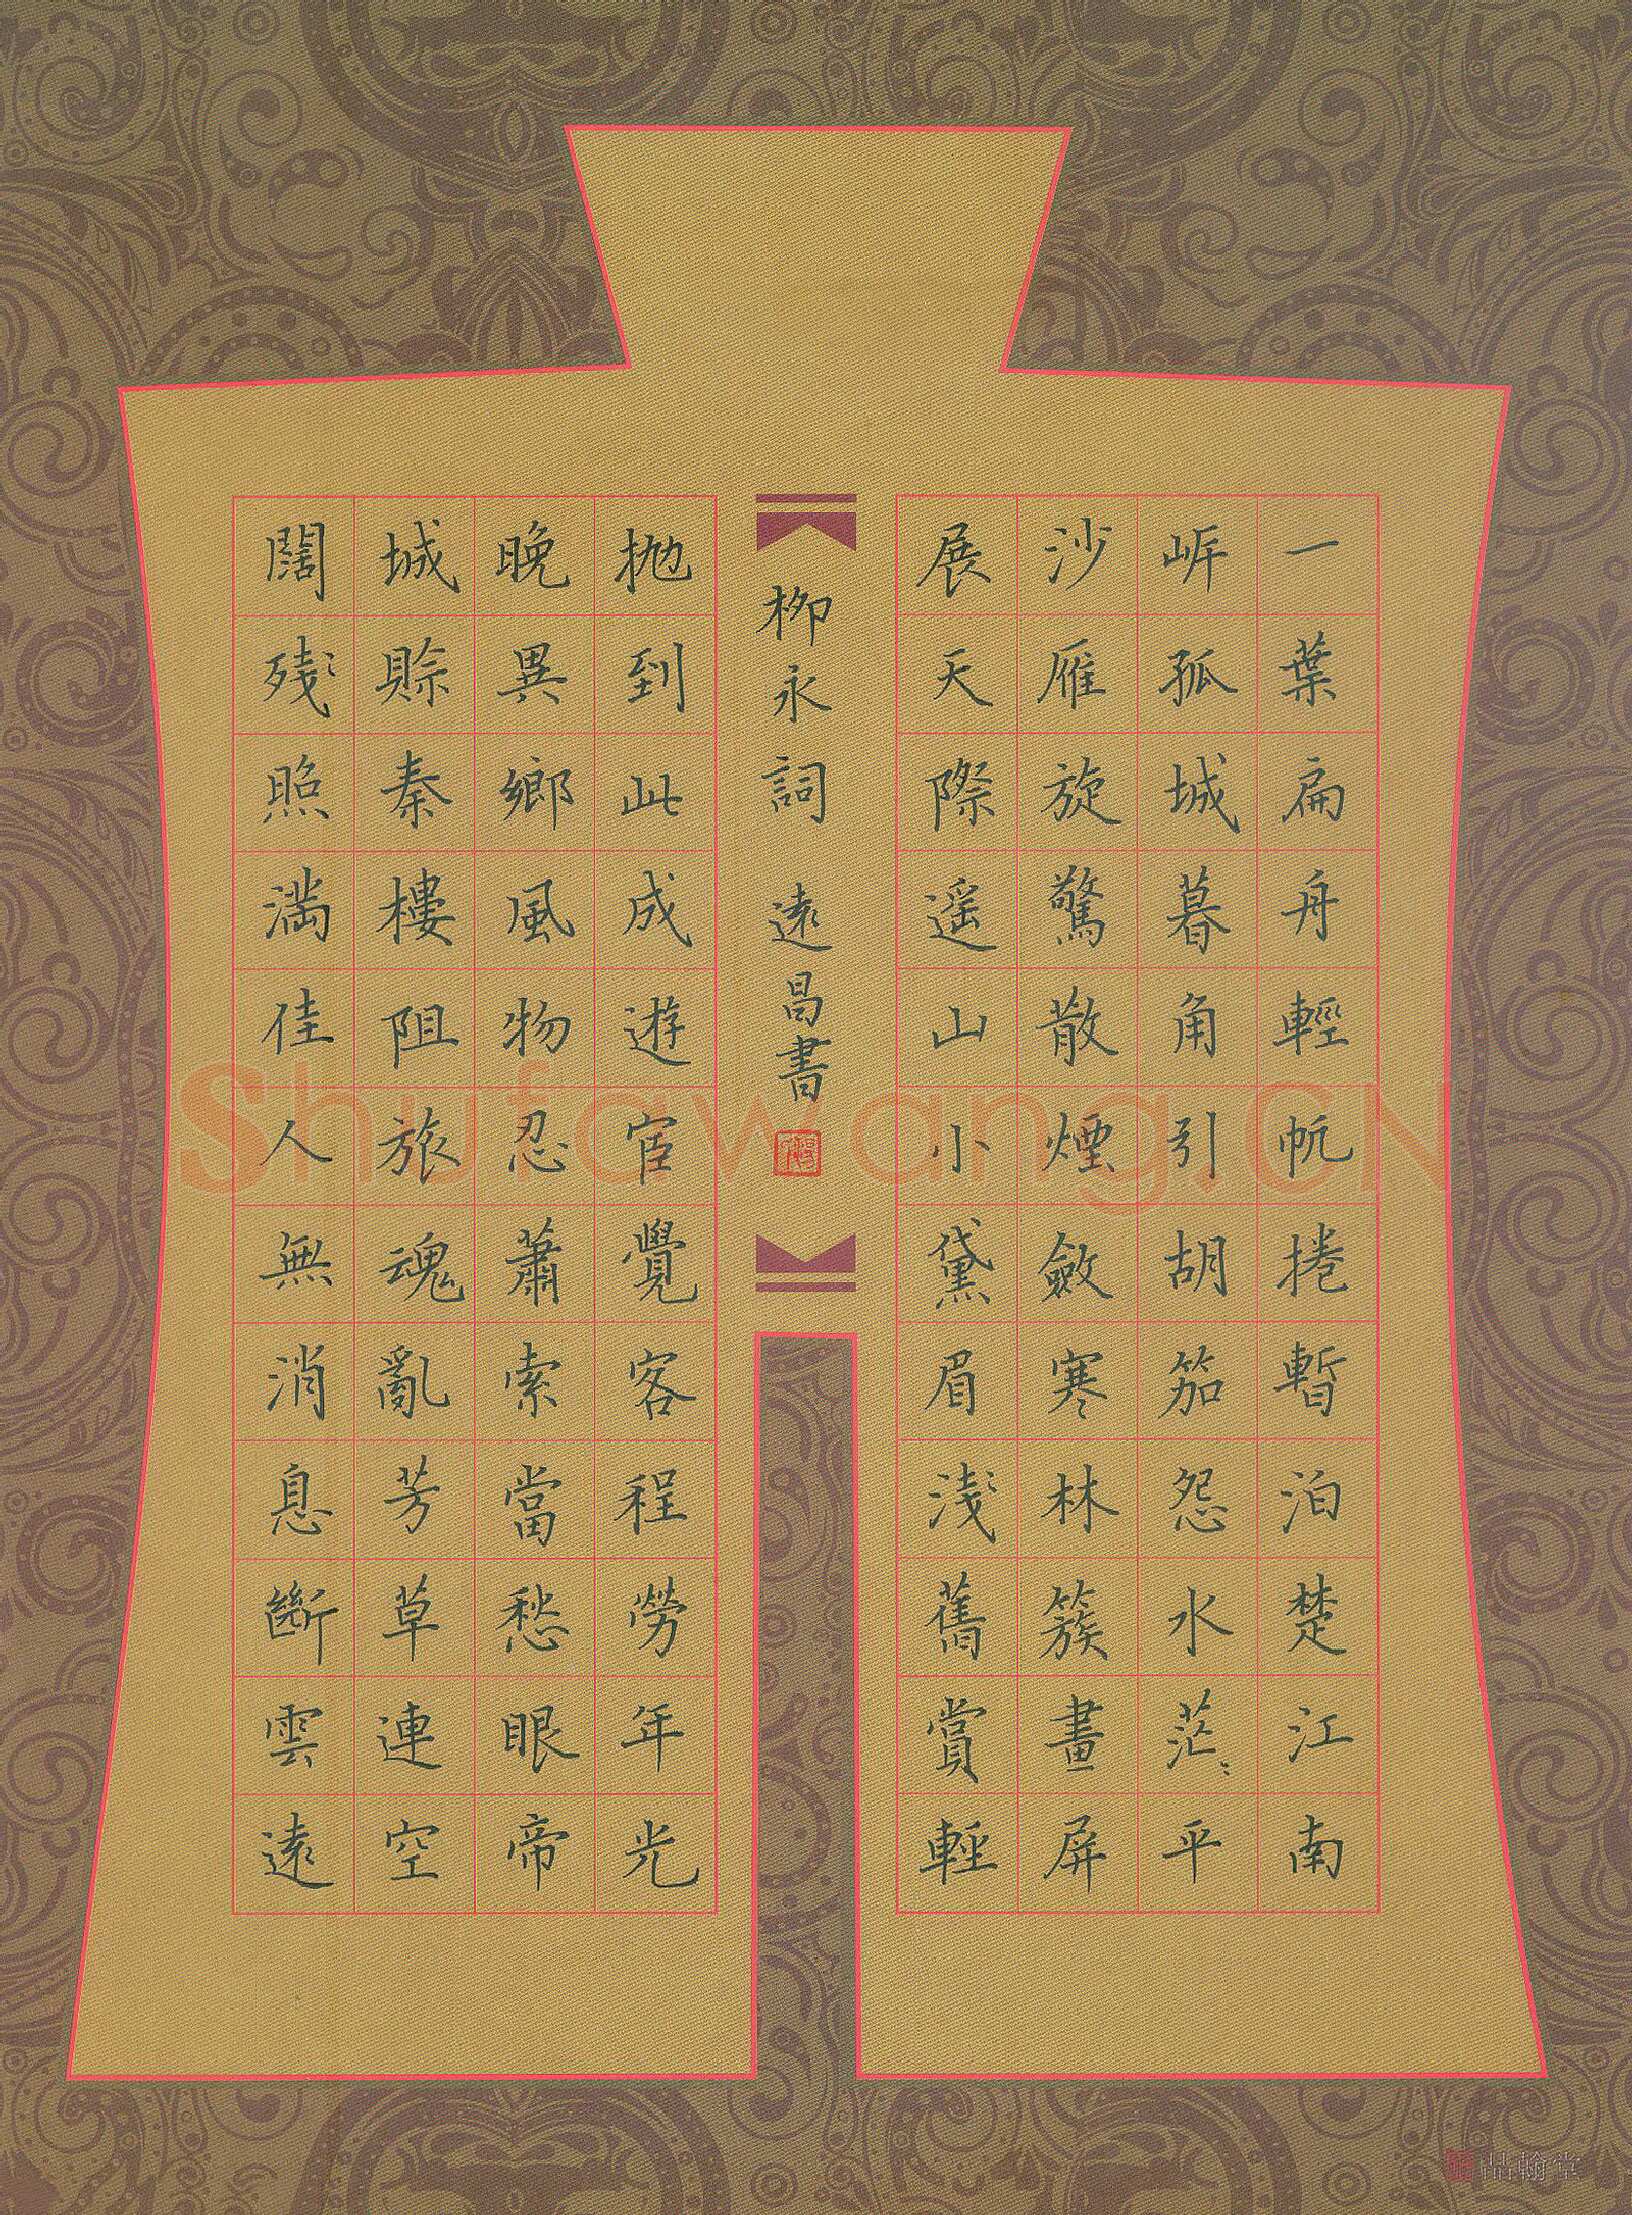 一葉扁舟輕帆捲暫泊楚江南
岸孤城暮角引胡笳怨水茫〻平
沙雁旋驚散煙斂寒林簇畫屏
展天際遥山小黛眉淺舊賞輕
柳永詞 遠昌書
抛到此成遊宦覺客程勞年光
晚異鄉風物忍蕭索當愁眼帝
城賒秦樓阻旅魂亂芳草連空
闊残照滿佳人無消息斷雲遠
Shufawang.CN
品翰堂